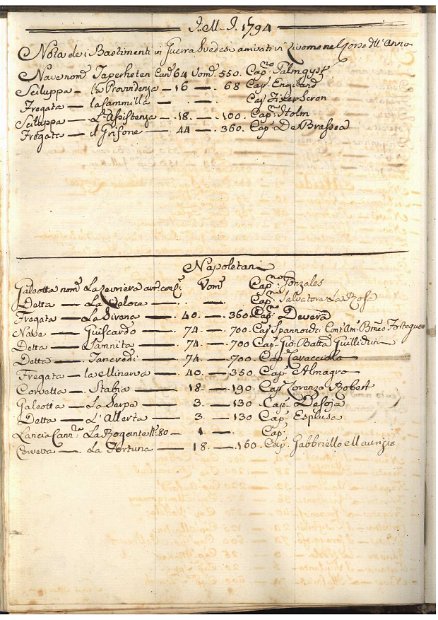 J. M. J. 1794
Nota de i Bastimenti in Guerra Svedesi arrivati in Livorno nel Corso dell'Anno
Nave nom. Taperheten Can. 64 Uom. 550. Cap. Palmqvst
Sciluppa — la Providenza — 16 — 68 Cap. Engelvard
Fregata — la Cammilla — Cap.
Sciluppa — L'Assistenza — 18. — 100. Cap. Holm
Fregata — il Grifone — 44 — 360. Cap. De Brassea
Napoletani
Galeotta nom. La Levriera Uom. Cap. Gonzales
Detta — La Veloce — Cap. Salvatora La Rosa
Fregata — La Sirena — 40. — 360 Cap. Devera
Nave — Guiscardo — 74. — 700. Cap. Spannochi
Detta — Sannita — 74 — 700 Cap. Gio. Batta
Detta — Tancredi — 74 — 700 Cap. Caracciolo
Fregata — la Minerva — 40 — 350 Cap. Almagro
Corvetta — Stabia — 18 — 190 Cap. Lorenzo Robert
Galeotta — La Serpa — 3 — 130 Cap. DeSoja
Detta — L'Allerta — 3 — 130 Cap. Espluga
Lancia Cann. La Rogente N. 80 — 1 — Cap.
— La Fortuna — 18. — 160. Cap. Gabbriello Maurizio